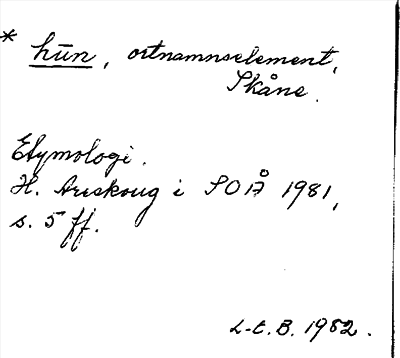 * hūn, ortnamnselement,
Skåne.
Etymologi.
H. Areskoug i SOÅ 1981,
s. 5 ff.
L-E. B. 1982.